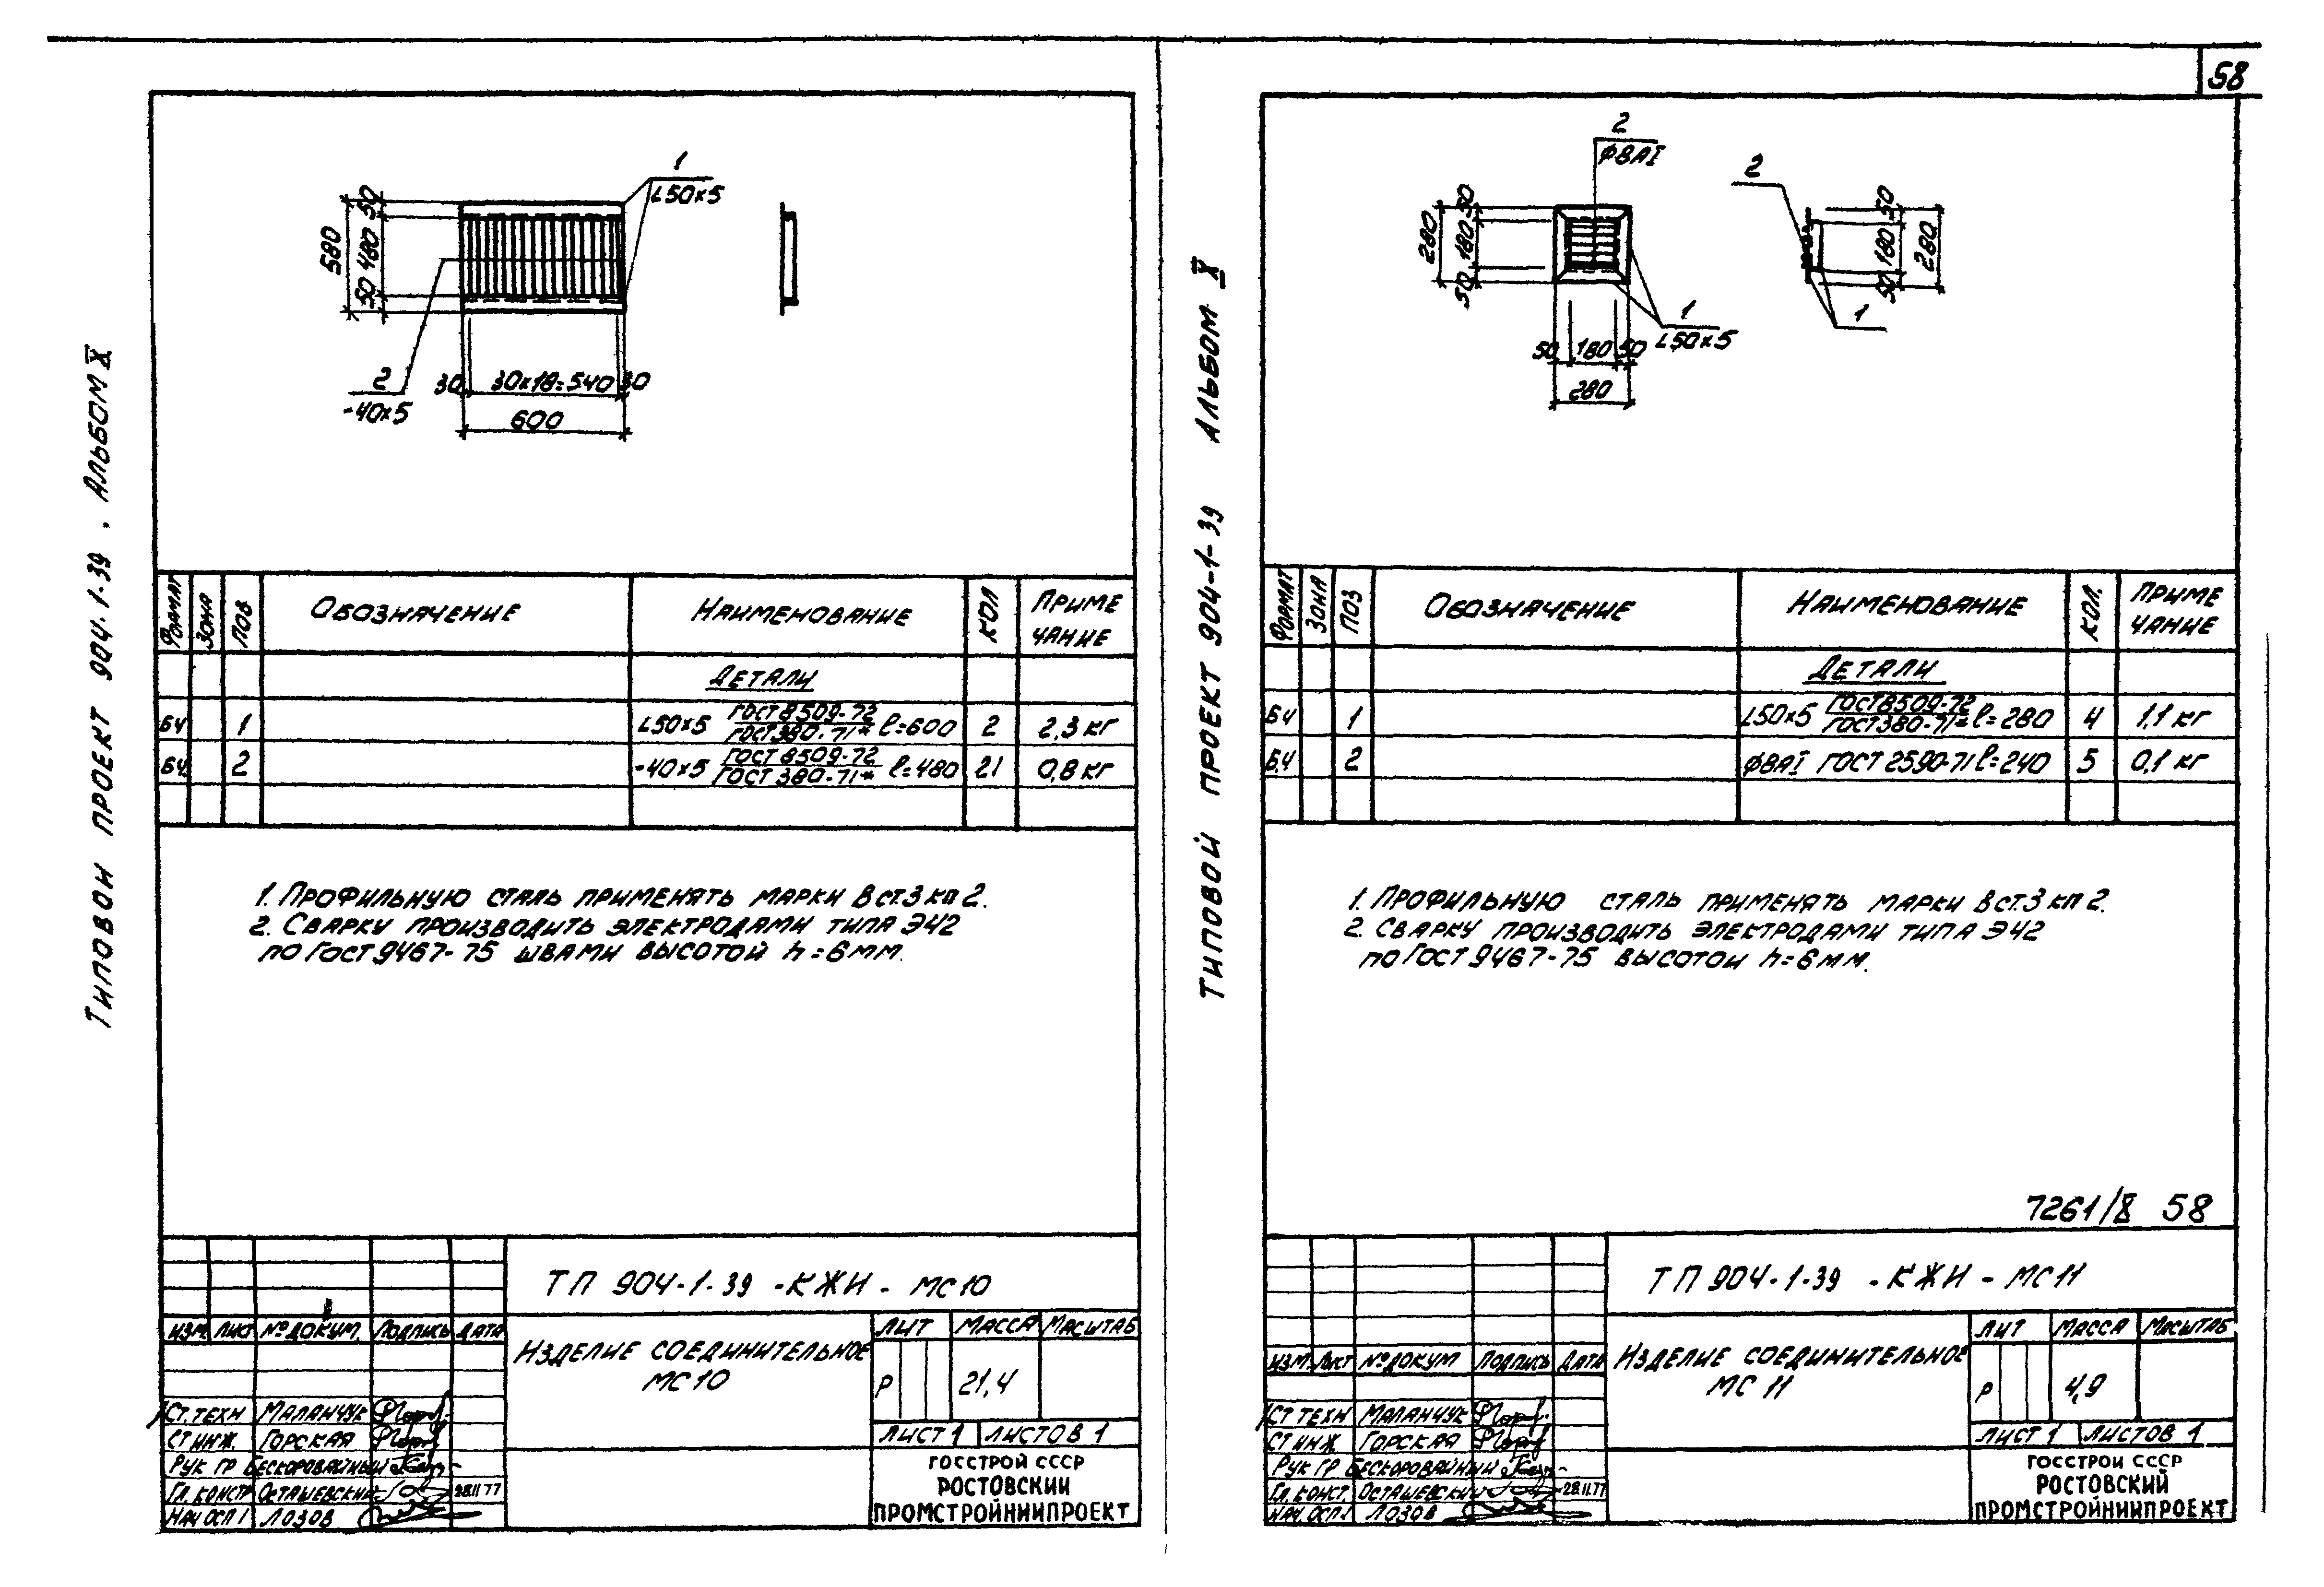 58
ТИПОВОЙ ПРОЕКТ 904-1-39 . АЛЬБОМ X
1
∟50×5
580
50
480
50
2
-40×5
30
30×18=540
30
600
ФОРМАТ ЗОНА ПОЗ ОБОЗНАЧЕНИЕ НАИМЕНОВАНИЕ КОЛ ПРИМЕ
ЧАНИЕ
ДЕТАЛИ
БЧ 1 ∟50×5 ГОСТ 8509-72/ГОСТ 380-71* ℓ=600 2 2,3 кг
БЧ 2 -40×5 ГОСТ 8509-72/ГОСТ 380-71* ℓ=480 21 0,8 кг
1. ПРОФИЛЬНУЮ СТАЛЬ ПРИМЕНЯТЬ МАРКИ В СТ.3 КП 2.
2. СВАРКУ ПРОИЗВОДИТЬ ЭЛЕКТРОДАМИ ТИПА Э42
ПО ГОСТ 9467-75 ШВАМИ ВЫСОТОЙ h=6 ММ.
ТП 904-1-39 -КЖИ- МС10
ИЗМ. ЛИСТ № ДОКУМ. ПОДПИСЬ ДАТА
ИЗДЕЛИЕ СОЕДИНИТЕЛЬНОЕ
МС10
ЛИТ МАССА МАСШТАБ
Р 21,4
ЛИСТ 1 ЛИСТОВ 1
СТ. ТЕХН МАЛАНЧУК
СТ ИНЖ. ГОРСКАЯ
РУК ГР БЕСКОРОВАЙНЫЙ
ГЛ. КОНСТР ОСТАШЕВСКИЙ 28.11 77
НАЧ ОСП 1 ЛОЗОВ
ГОССТРОЙ СССР
РОСТОВСКИЙ
ПРОМСТРОЙНИИПРОЕКТ
ТИПОВОЙ ПРОЕКТ 904-1-39 АЛЬБОМ X
2
Ф8АI
280
50
180
50
1
∟50×5
50
180
50
280
2
1
50
180
50
280
ФОРМАТ ЗОНА ПОЗ ОБОЗНАЧЕНИЕ НАИМЕНОВАНИЕ КОЛ. ПРИМЕ
ЧАНИЕ
ДЕТАЛИ
БЧ 1 ∟50×5 ГОСТ 8509-72/ГОСТ 380-71* ℓ=280 4 1,1 кг
Б.Ч 2 Ф8АI ГОСТ 2590-71 ℓ=240 5 0,1 кг
1. ПРОФИЛЬНУЮ СТАЛЬ ПРИМЕНЯТЬ МАРКИ В СТ.3 КП 2.
2. СВАРКУ ПРОИЗВОДИТЬ ЭЛЕКТРОДАМИ ТИПА Э42
ПО ГОСТ 9467-75 ВЫСОТОЙ h=6 ММ.
58
ТП 904-1-39 -КЖИ- МС11
ИЗМ. ЛИСТ № ДОКУМ ПОДПИСЬ ДАТА
ИЗДЕЛИЕ СОЕДИНИТЕЛЬНОЕ
МС 11
ЛИТ МАССА МАСШТАБ
Р 4,9
ЛИСТ 1 ЛИСТОВ 1
СТ ТЕХН МАЛАНЧУК
СТ ИНЖ ГОРСКАЯ
РУК ГР БЕСКОРОВАЙНЫЙ
ГЛ. КОНСТ. ОСТАШЕВСКИЙ 28.11.77
НАЧ. ОСП.1 ЛОЗОВ
ГОССТРОЙ СССР
РОСТОВСКИЙ
ПРОМСТРОЙНИИПРОЕКТ